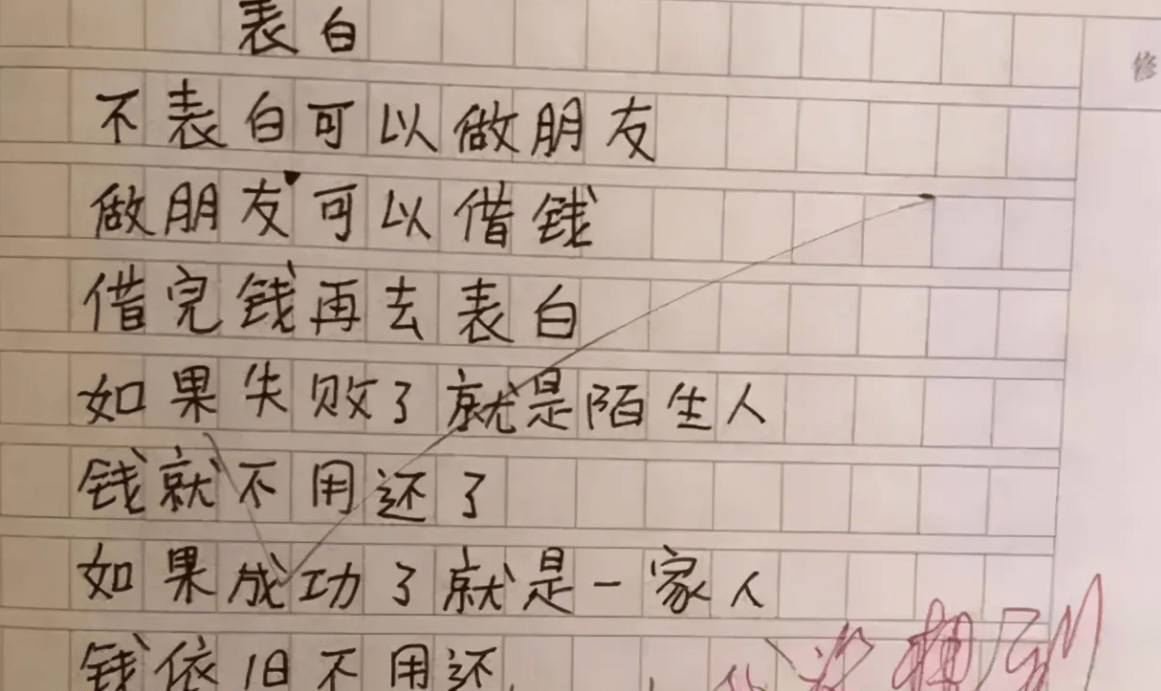 表白
修
不表白可以做朋友
做朋友可以借钱
借完钱再去表白
如果失败了就是陌生人
钱就不用还了
如果成功了就是一家人
钱依旧不用还
没想到